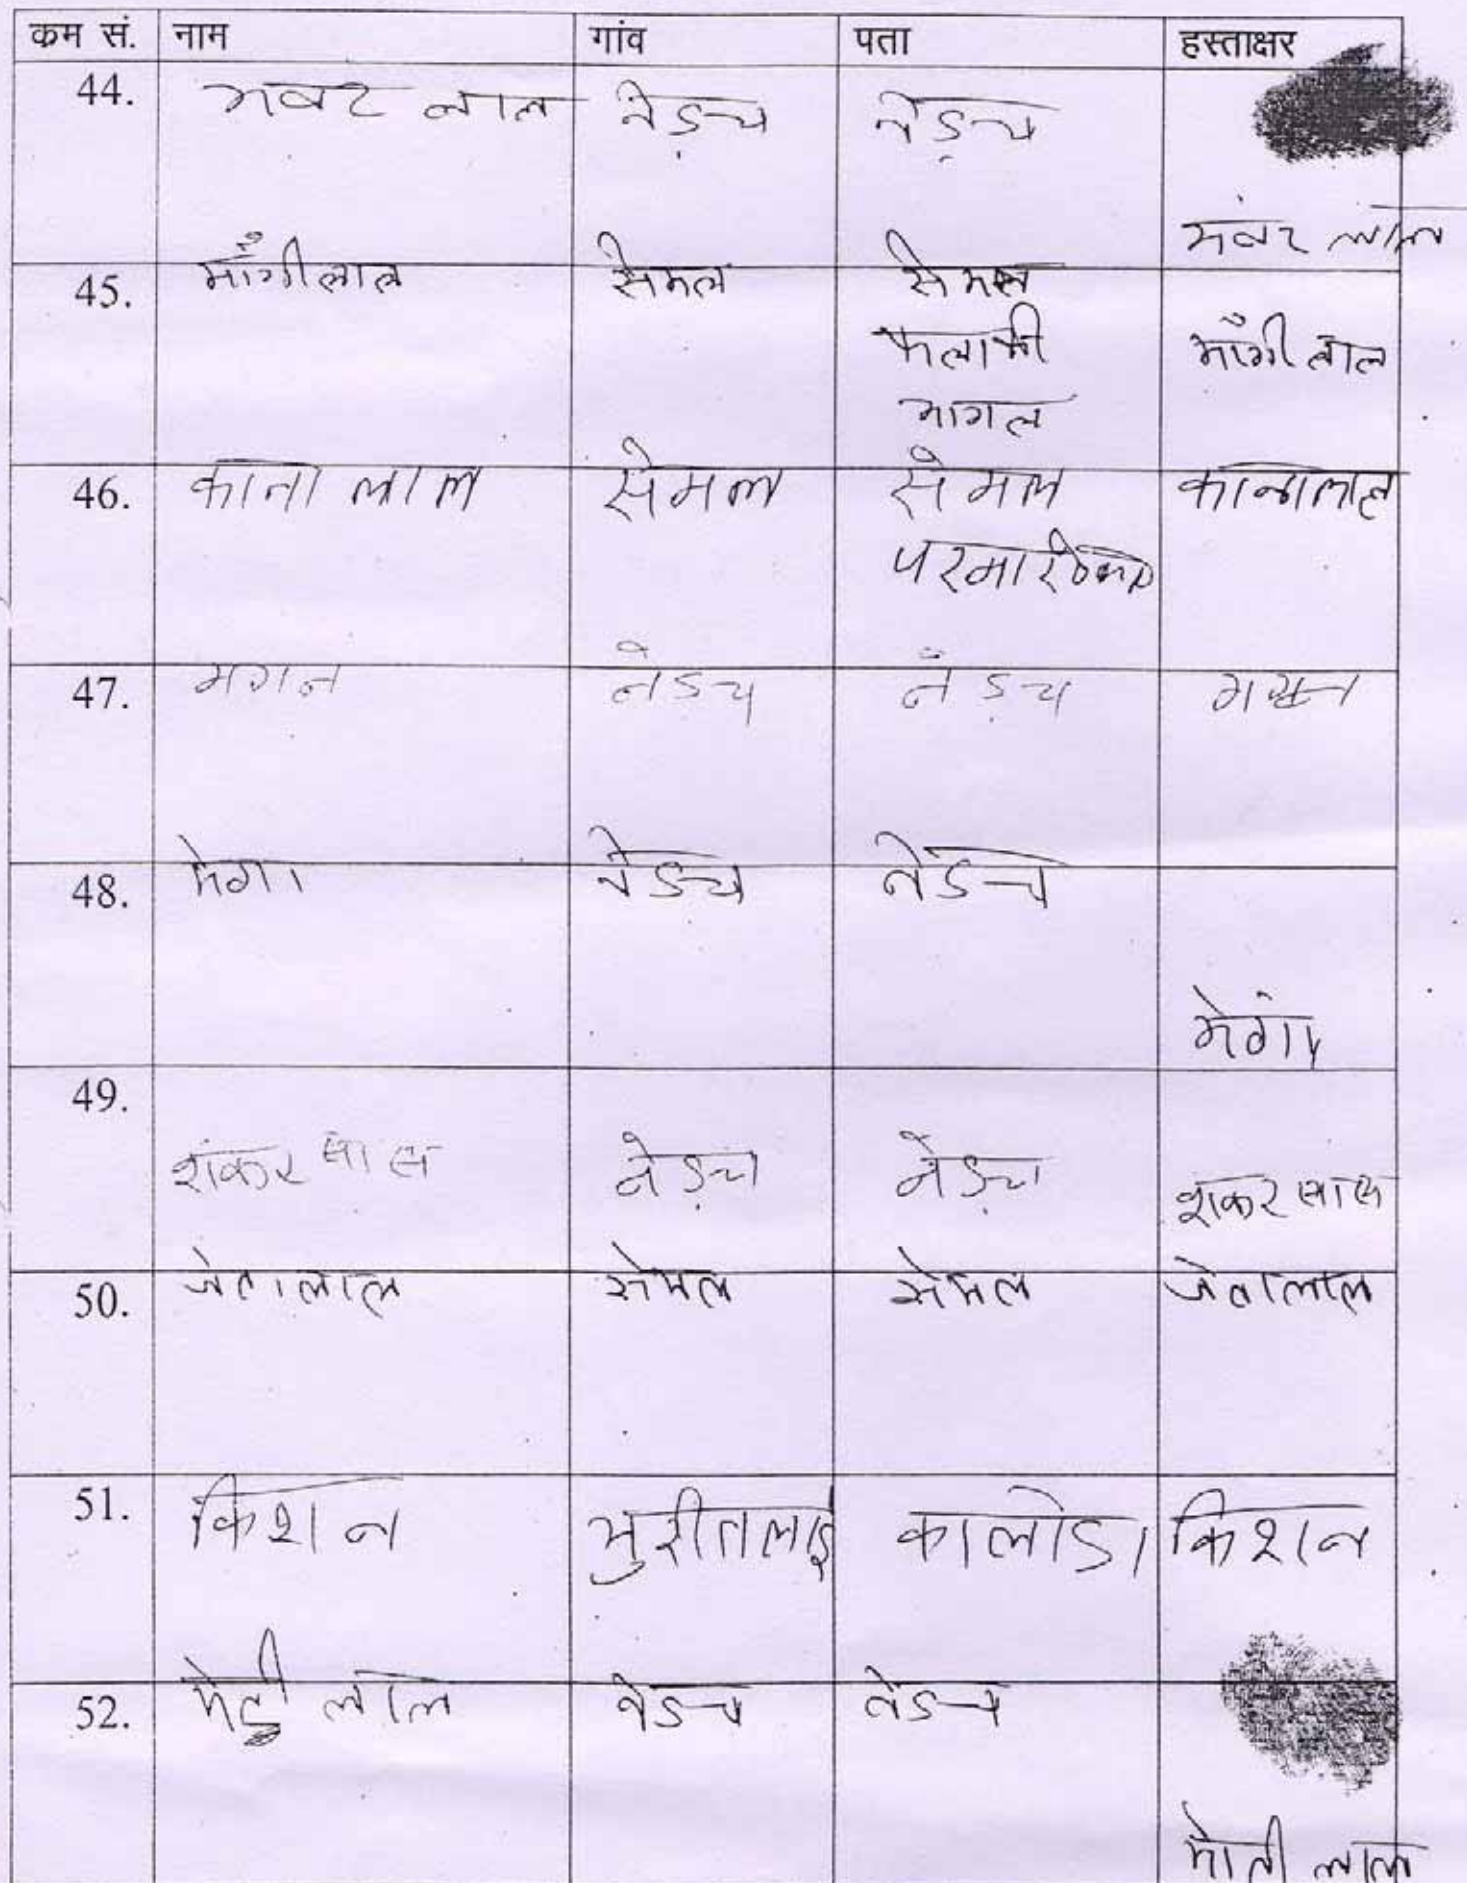 कम सं. नाम गांव पता हस्ताक्षर
44. भवर लाल नेड़च नेड़च
भंवर लाल
45. माँगीलाल सेमल सेमल
माँगीलाल
46. काना लाल सेमल सेमल कानालाल
47. मगन नेडच नेडच
48. मेगा नेडच नेडच
मेगा
49.
शंकर लाल नेड़च नेड़च शंकर लाल
50. जेतालाल सेमल सेमल जेतालाल
51. किशन कालोडा किशन
52. लाल नेडच नेडच
मोती लाल